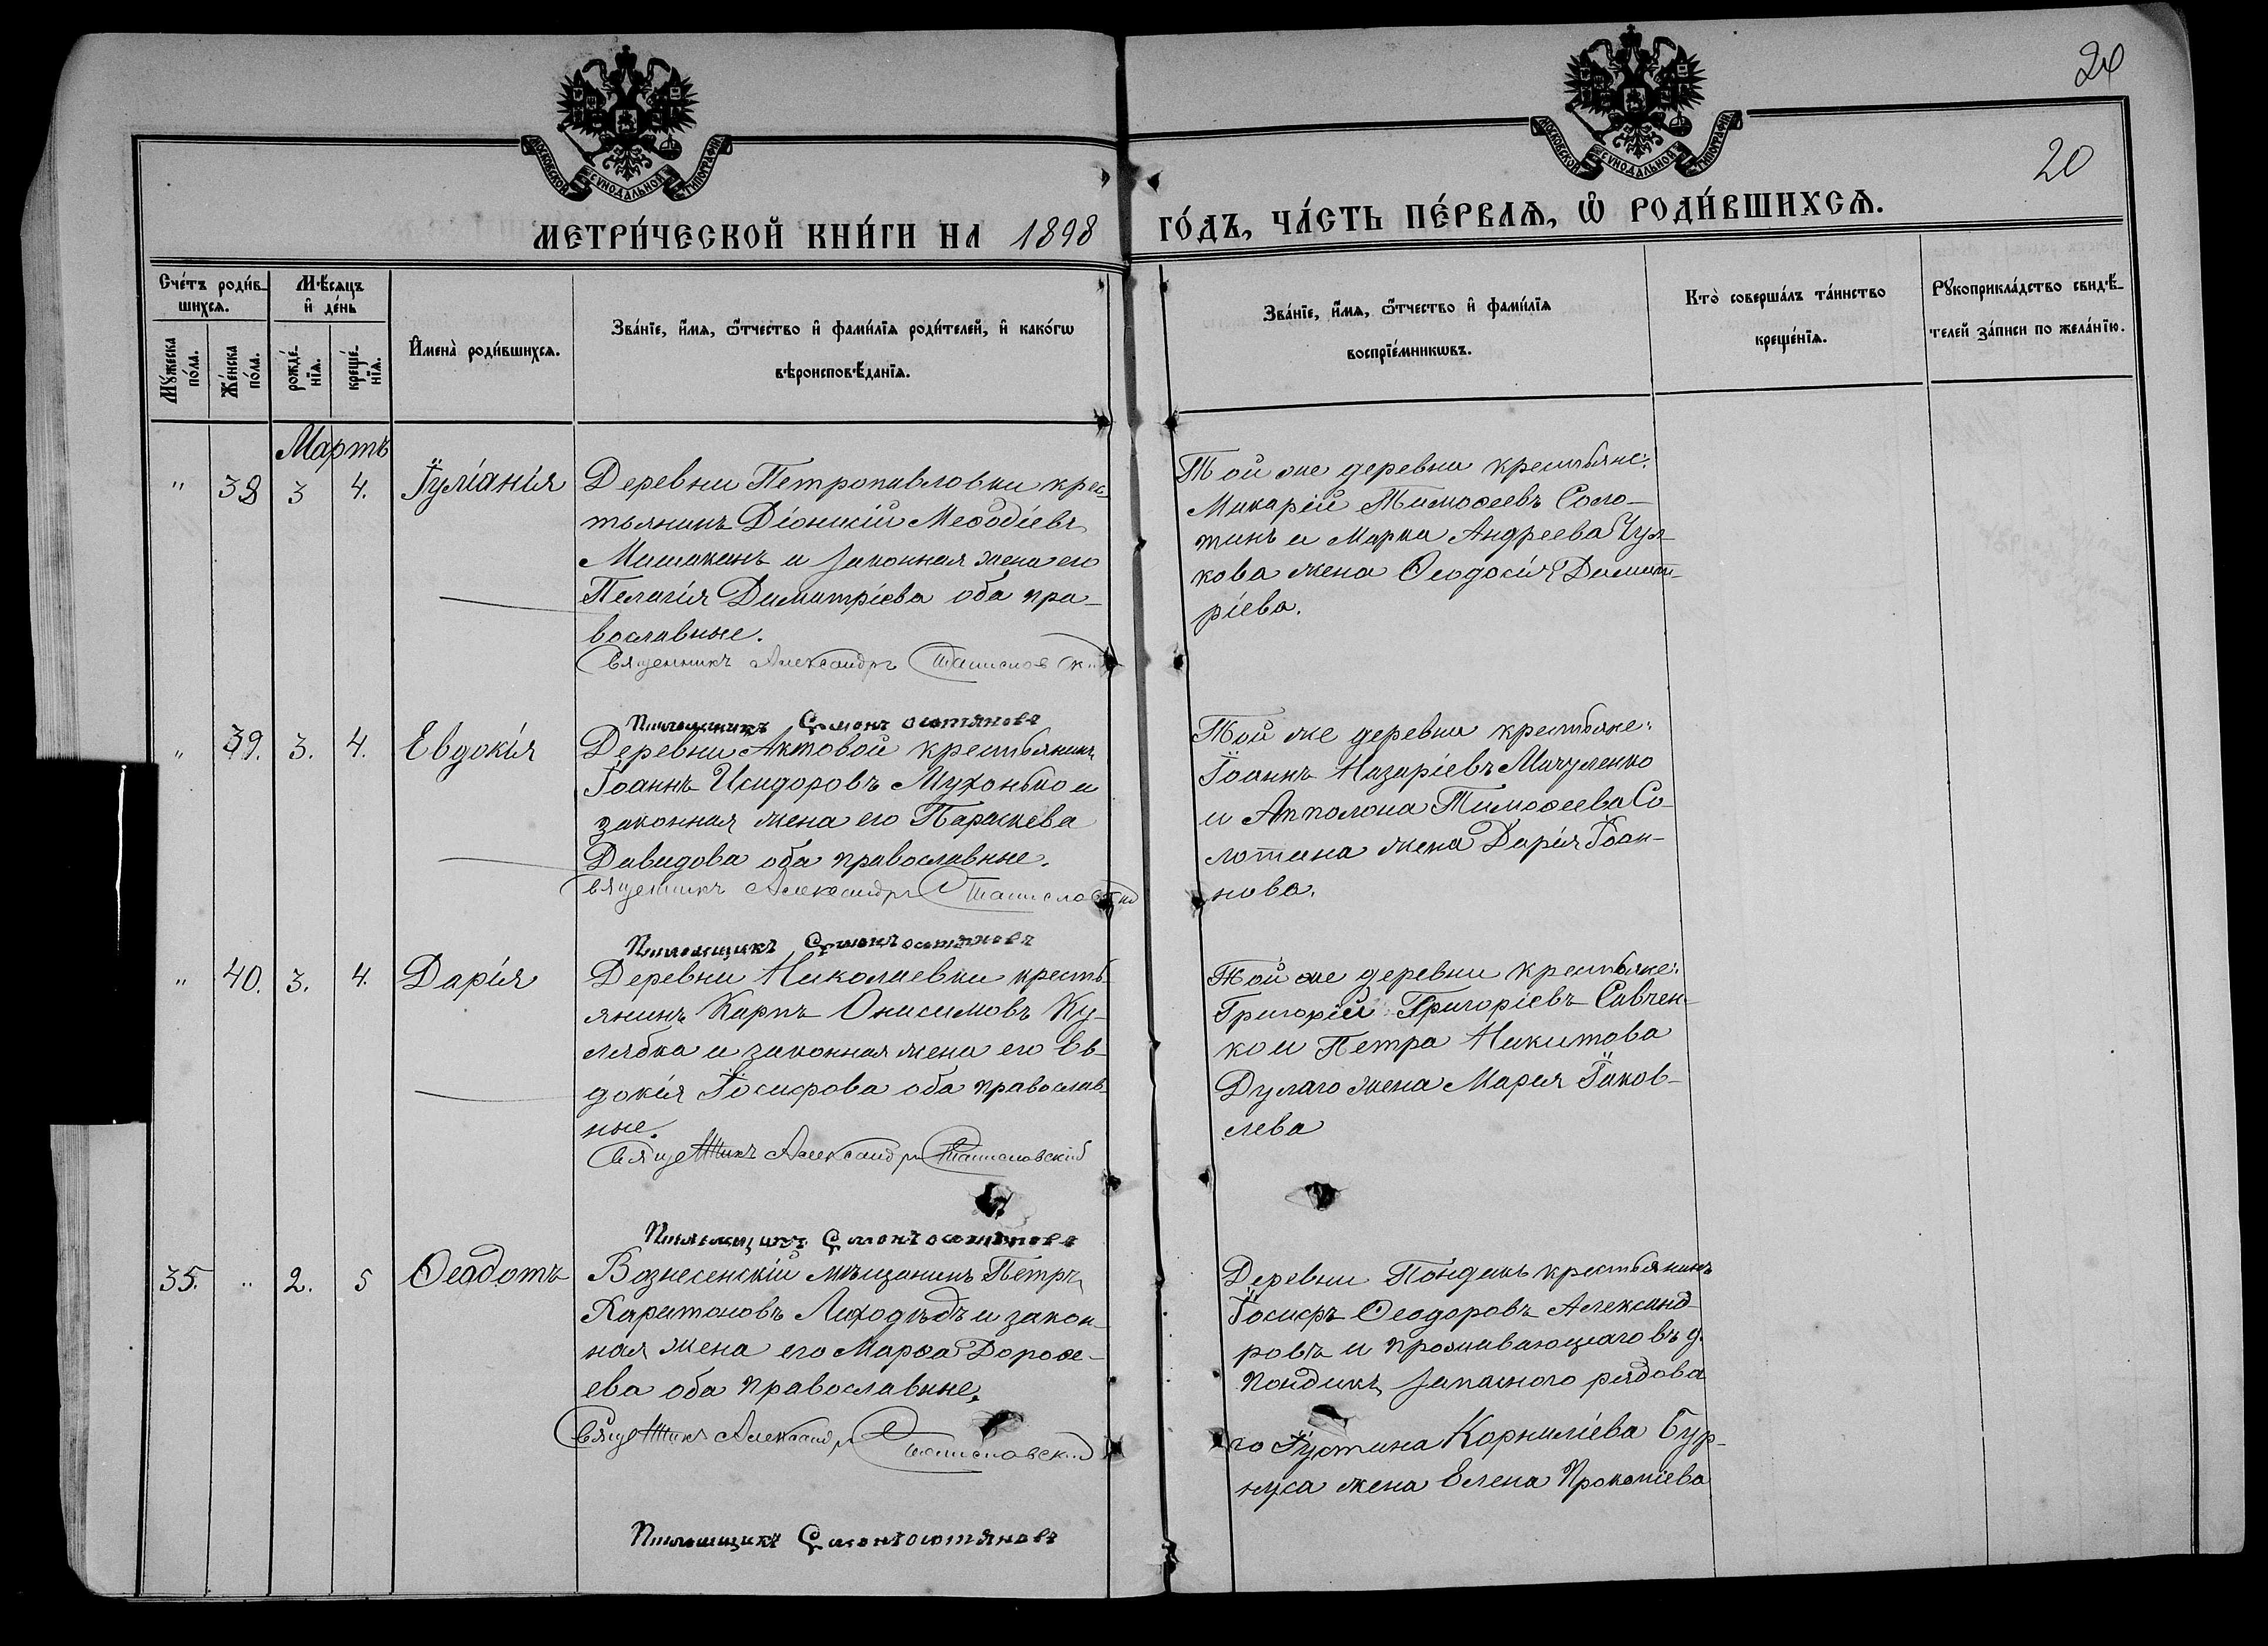 24
20
МОСКОВСКОЙ СѴНОДАЛЬНОЙ ТИПОГРАФІИ
МОСКОВСКОЙ СѴНОДАЛЬНОЙ ТИПОГРАФІИ
МЕТРИ́ЧЕСКОЙ КНИ́ГИ НА 1898 ГО́ДЪ, ЧА́СТЬ ПЕ́РВАѦ, Ѡ҆ РОДИ́ВШИХСѦ.
Сче́тъ роди́в-
шихсѧ.
Мꙋ́жеска по́ла.
Же́нска по́ла.
Мѣ́сѧцъ и҆ де́нь
рожде́-нїѧ.
креще́-нїѧ.
И҆мена̀ роди́вшихсѧ.
Зва́нїе, и҆́мѧ, ѻ҆́тчество и҆ фами́лїѧ роди́телей, и҆ како́гѡ
вѣроисповѣ́данїѧ.
Зва́нїе, и҆́мѧ, ѻ҆́тчество и҆ фами́лїѧ
воспрїе́мникѡвъ.
Кто̀ соверша́лъ та́инство
креще́нїѧ.
Рꙋкоприкла́дство свидѣ́-
телей за́писи по жела́нїю.
Мартъ
" 38 3 4. Іуліанія
Деревни Петропавловки крес-
тьянинъ Діонисій Меѳодіевъ
и законная жена его
Пелагія Димитріева оба пра-
вославные.
Священникъ Александръ Станиславскій
Той же деревни крестьяне:
Макарій Тимоѳеевъ Соло-
тинъ и Марка Андреева Чул-
кова жена Ѳеодосія Димит-
ріева.
Псаломщикъ
" 39. 3. 4. Евдокія
Деревни Актовой крестьянинъ
Іоаннъ Исидоровъ Мухонько и
законная жена его Параскева
Давидова оба православные.
Священникъ Александръ Станиславскій
Той же деревни крестьяне:
Іоаннъ Назаріевъ Мичуленко
и Апполона Тимоѳеева Со-
лотина жена Дарія Іоан-
нова.
Псаломщикъ
" 40. 3. 4. Дарія
Деревни Николаевки кресть-
янинъ Карпъ Онисимовъ Ку-
лябка и законная жена его Ев-
докія Іосифова оба православ-
ные.
Священникъ Александръ Станиславскій
Той же деревни крестьяне:
Григорій Григоріевъ Савчен-
ко и Петра Никитова
Дулаго жена Марія Іаков-
лева
Псаломщикъ
35. " 2. 5 Ѳеодотъ
Вознесенскій мѣщанинъ Петръ
Харитоновъ Лиходѣдъ и закон-
ная жена его Марѳа Дороѳе-
ева оба православные.
Священникъ Александръ Станиславскій
Деревни Пондикъ крестьянинъ
Іосифъ Ѳеодоровъ Александ-
ровъ и проживающаго въ д.
Пондикъ запаснаго рядова
го Іустина Корниліева Бур-
нуса жена Елена Прокопіева
Псаломщикъ